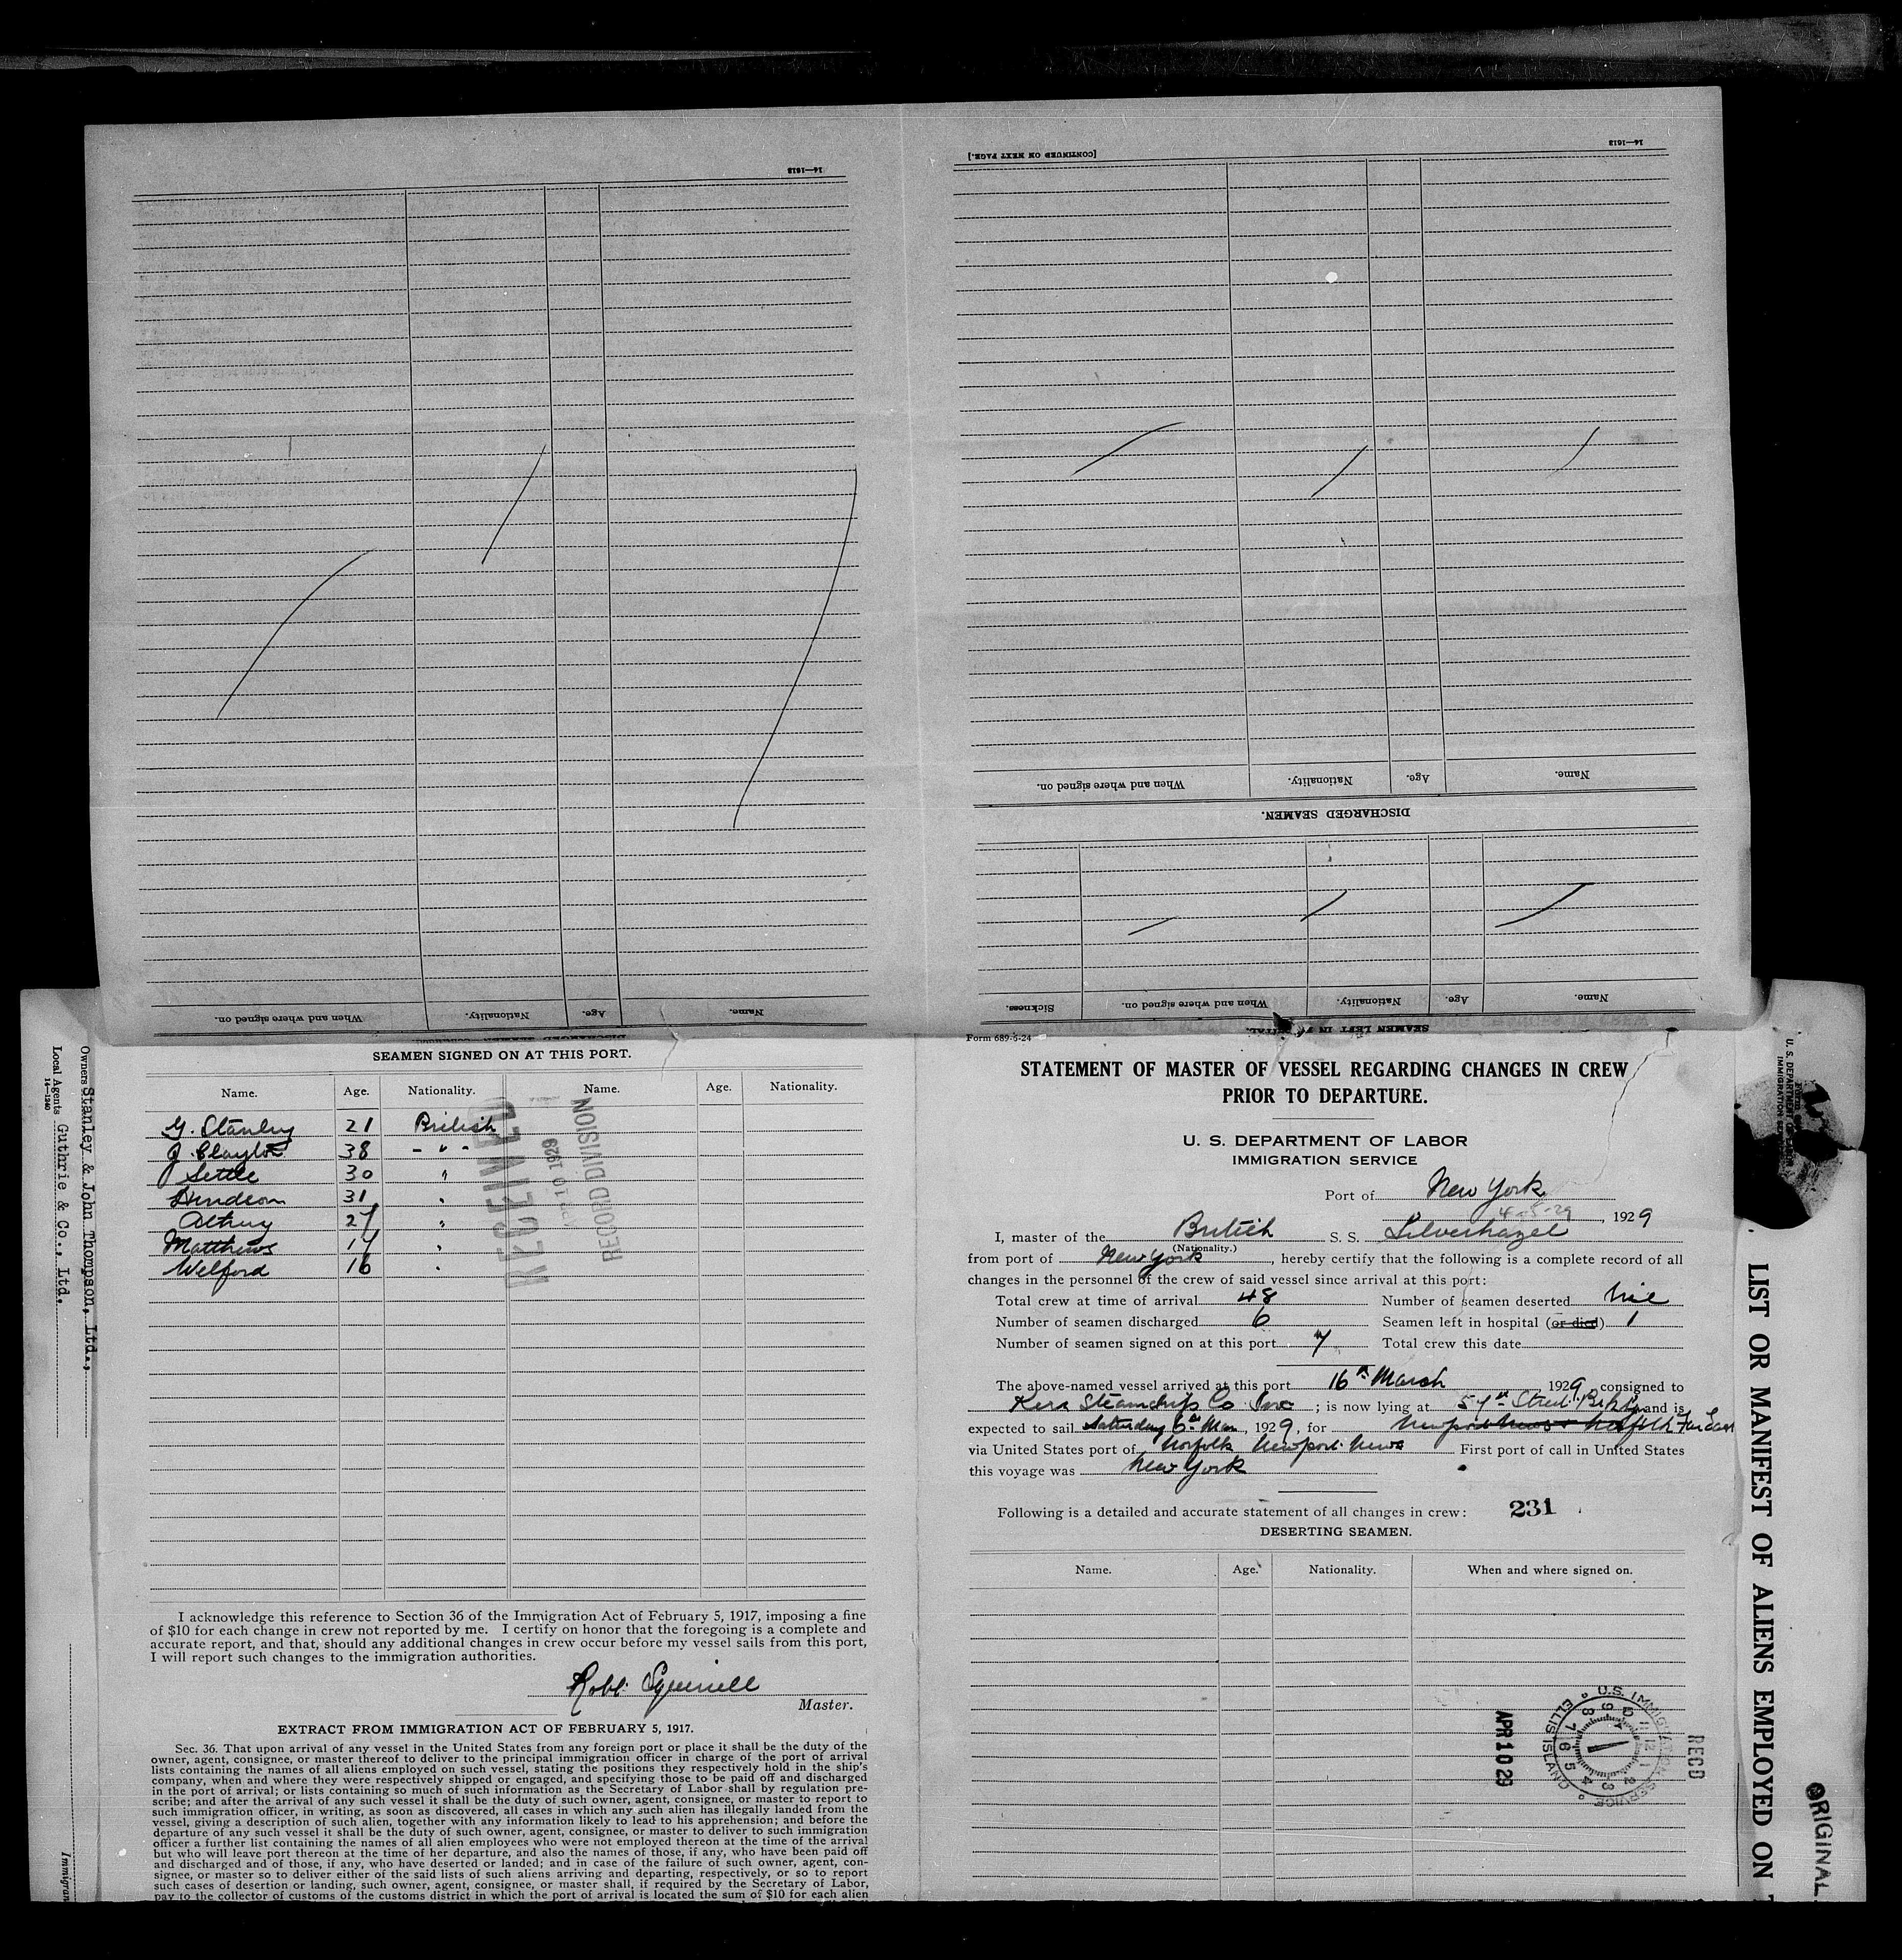 14—1613
[CONTINUED ON NEXT PAGE.]
14—1613
When and where signed on.
Nationality.
Age.
Name.
DISCHARGED SEAMEN.
Sickness.
When and where signed on.
Nationality.
Age.
Name.
SEAMEN LEFT IN
When and where signed on.
Nationality.
Age.
Name.
Owners Stanley & John Thompson, Ltd.,
Local Agents Guthrie & Co., Ltd.
14—1240
SEAMEN SIGNED ON AT THIS PORT.
Name. Age. Nationality. Name. Age. Nationality.
G. Stanley 21 British
J. Clayton 38 - " -
Settle 30 "
31 "
27 "
Matthews 17 "
Welford 16 "
RECEIVED
APR 10 1929
RECORD DIVISION
I acknowledge this reference to Section 36 of the Immigration Act of February 5, 1917, imposing a fine
of $10 for each change in crew not reported by me. I certify on honor that the foregoing is a complete and
accurate report, and that, should any additional changes in crew occur before my vessel sails from this port,
I will report such changes to the immigration authorities.
Robt.
Master.
EXTRACT FROM IMMIGRATION ACT OF FEBRUARY 5, 1917.
Sec. 36. That upon arrival of any vessel in the United States from any foreign port or place it shall be the duty of the
owner, agent, consignee, or master thereof to deliver to the principal immigration officer in charge of the port of arrival
lists containing the names of all aliens employed on such vessel, stating the positions they respectively hold in the ship's
company, when and where they were respectively shipped or engaged, and specifying those to be paid off and discharged
in the port of arrival; or lists containing so much of such information as the Secretary of Labor shall by regulation pre-
scribe; and after the arrival of any such vessel it shall be the duty of such owner, agent, consignee, or master to report to
such immigration officer, in writing, as soon as discovered, all cases in which any such alien has illegally landed from the
vessel, giving a description of such alien, together with any information likely to lead to his apprehension; and before the
departure of any such vessel it shall be the duty of such owner, agent, consignee, or master to deliver to such immigration
officer a further list containing the names of all alien employees who were not employed thereon at the time of the arrival
but who will leave port thereon at the time of her departure, and also the names of those, if any, who have been paid off
and discharged and of those, if any, who have deserted or landed; and in case of the failure of such owner, agent, con-
signee, or master so to deliver either of the said lists of such aliens arriving and departing, respectively, or so to report
such cases of desertion or landing, such owner, agent, consignee, or master shall, if required by the Secretary of Labor,
pay to the collector of customs of the customs district in which the port of arrival is located the sum of $10 for each alien
Form 689-5-24
STATEMENT OF MASTER OF VESSEL REGARDING CHANGES IN CREW
PRIOR TO DEPARTURE.
U. S. DEPARTMENT OF LABOR
IMMIGRATION SERVICE
Port of New York
4-5-29, 1929
I, master of the British S. S. Silverhazel
(Nationality.)
from port of New York, hereby certify that the following is a complete record of all
changes in the personnel of the crew of said vessel since arrival at this port:
Total crew at time of arrival 48 Number of seamen deserted nil
Number of seamen discharged 6 Seamen left in hospital (or died) 1
Number of seamen signed on at this port 7 Total crew this date
The above-named vessel arrived at this port 16th March, 1929, consigned to
Kerr Steamship Co Inc; is now lying at 57th Street Bklyn and is
expected to sail Saturday 6th, 1929, for Newport News & Norfolk Far East
via United States port of Norfolk Newport News First port of call in United States
this voyage was New York
Following is a detailed and accurate statement of all changes in crew: 231
DESERTING SEAMEN.
Name. Age. Nationality. When and where signed on.
APR 10 29
U.S. IMMIGRATION SERVICE
ELLIS ISLAND
RECD
LIST OR MANIFEST OF ALIENS EMPLOYED ON
ORIGINAL
Immigran